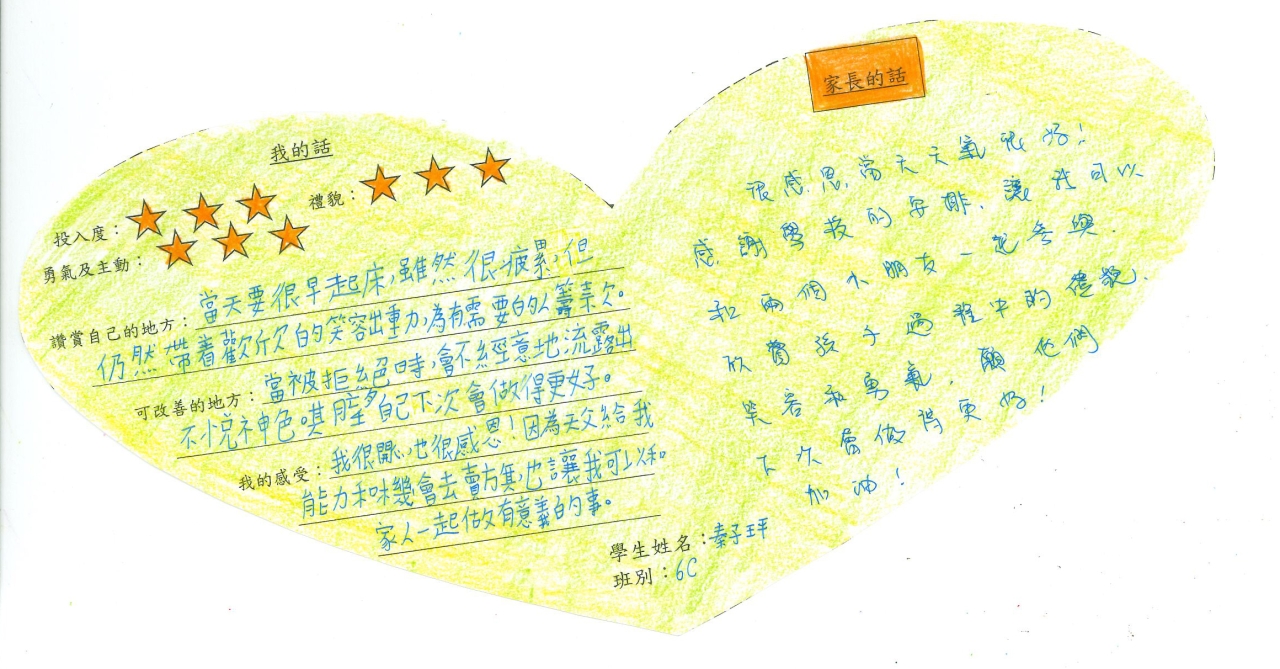 我的話
投入度： 禮貌：
勇氣及主動：
讚賞自己的地方：當天要很早起床,雖然很疲累,但
仍然帶着歡欣的笑容出動,為有需要的人籌款。
可改善的地方：當被拒絕時,會不經意地流露出
不悅神色 自己下次會做得更好。
我的感受：我很開心,也很感恩!因為天父給我
能力和機會去賣旗,也讓我可以和
家人一起做有意義的事。
學生姓名：秦子玶
班別：6C
家長的話
很感恩,當天天氣很好!
感謝學校的安排,讓我可以
和兩個小朋友一起參與.
欣賞孩子過程中的禮貌.
笑容和勇氣,願他們
下次會做得更好!
加油!